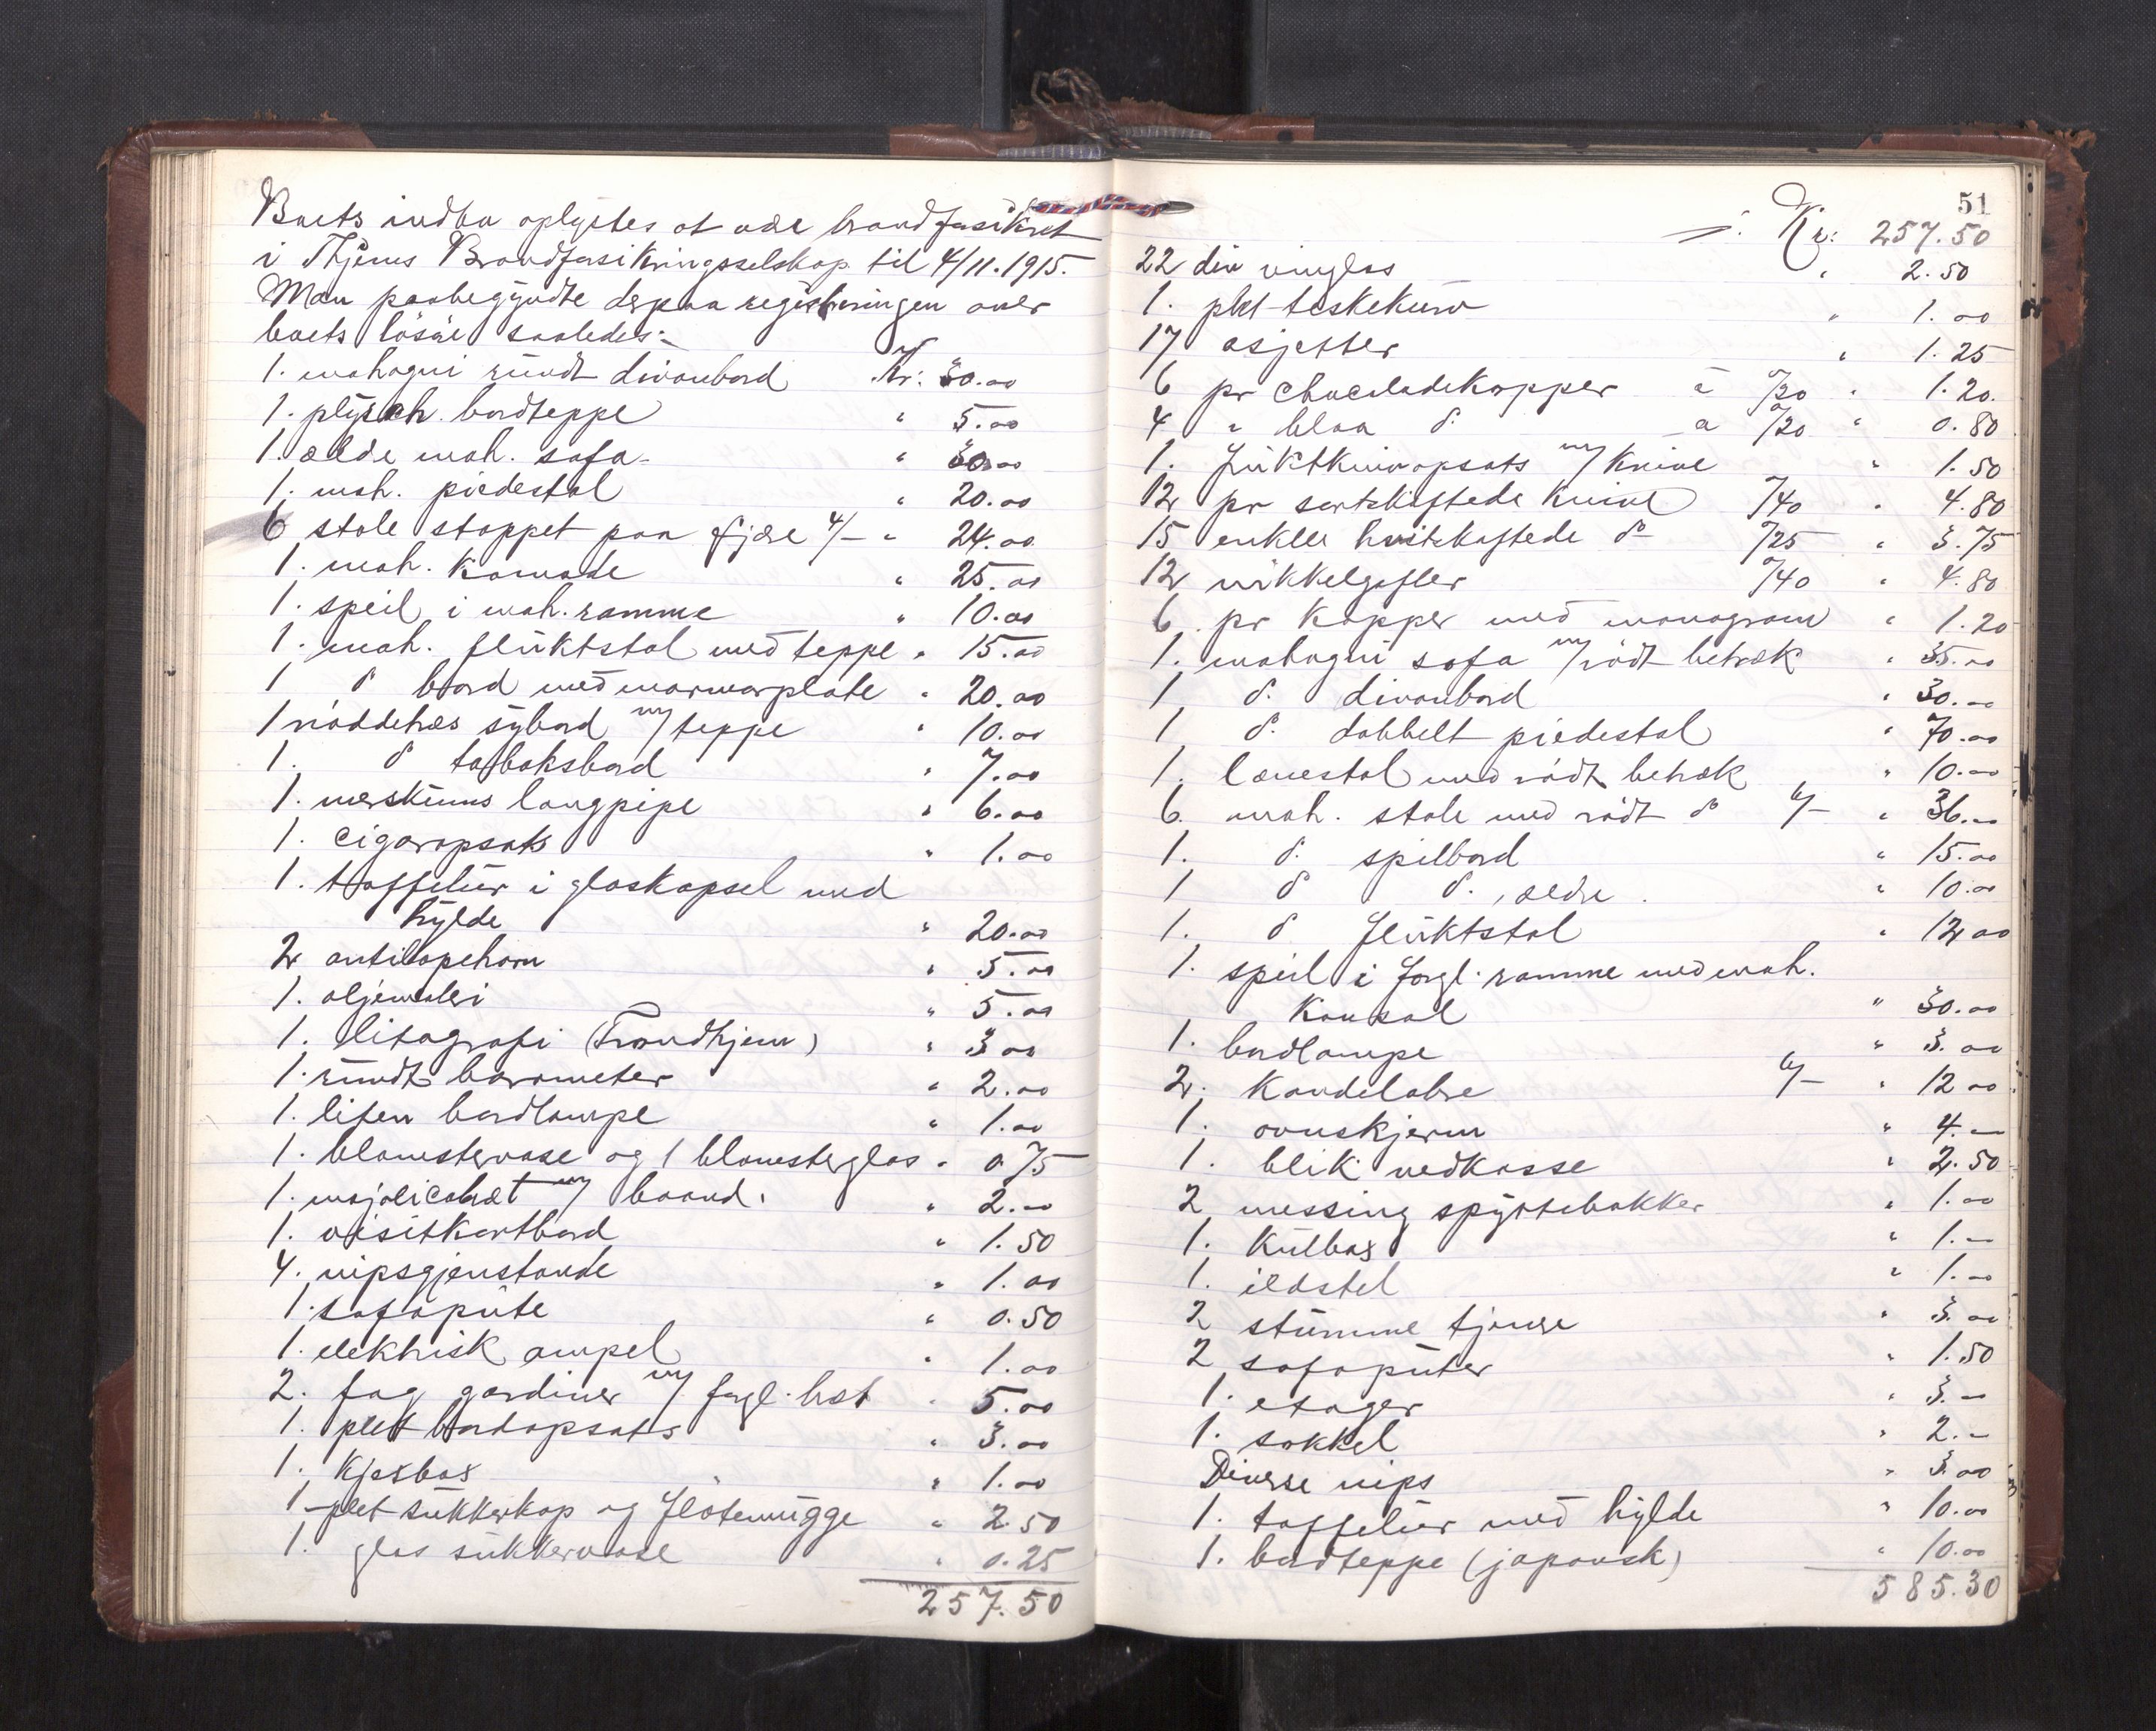 Boets indbo oplystes at være brandforsikret
i Thjems Brandforsikringsselskap til 4/11.1915.
Man paabegyndte derpaa registreringen over
boets lösöre saaledes:
1. mahogni rundt divanbord Kr: 30.00
1. plysch bordteppe " 5.00
1. ældre mah. sofa " 30.00
1. mah. piedestal " 20.00
6 stole stoppet paa fjære 4/- " 24.00
1. mah. Komode " 25.00
1. speil i mah. ramme " 10.00
1. mah. fluktstol med teppe " 15.00
1 do bord med marmorplate " 20.00
1 nöddetræs sybord m/ teppe " 10.00
1. do tobaksbord " 7.00
1. merskums langpipe " 6.00
1. cigaropsats " 1.00
1. taffelur i glaskapsel med
hylde " 20.00
2 antilopehorn " 5.00
1. oljemaleri " 5.00
1. litografi (Trondhjem) " 3.00
1. rundt barometer " 2.00
1. liten bordlampe " 1.00
1. blomstervase og 1 blomsterglas " 0.75
1. majolicafat m/ baand. " 2.00
1. visitkortbord " 1.50
4. nipsgjenstande " 1.00
1. sofapute " 0.50
1. elektrisk ampel " 1.00
2. fag gardiner m/ forgl. list " 5.00
1. plet bordopsats " 3.00
1. Kjexbox " 1.00
1 plet sukkerkop og flötemugge " 2.50
1. glas sukkervase " 0.25
257.50
51
Kr: 257.50
22 div vinglas " 2.50
1. plet teskekurv " 1.00
17 asjetter " 1.25
6 pr chocoladekopper a "/20 " 1.20.
4 " blaa do a "/20 " 0.80
1. fruktknivopsats m/ Knive " 1.50
12 pr sortskaftede Knive "/40 " 4.80
15 enkle hvitskaftede do "/25 " 3.75
12 nikkelgafler "/40 " 4.80
6 pr Kopper med monogram " 1.20
1. mahogni sofa m/ rödt betræk " 35.00
1 do. divanbord " 30.00
1 do. dobbelt piedestal " 70.00
1. lænestol med rödt betræk " 10.00
6. mah. stole med rödt do 6/- " 36.00
1. do. spilbord " 15.00
1 do do., ældre. " 10.00
1. do fluktstol " 12.00
1. speil i forgl. ramme med mah.
Konsol " 30.00
1. bordlampe " 3.00
2. Kandelabre 6/- " 12.00
1. ovnskjerm " 4.—
1. blik vedkasse " 2.50
2 messing spyttebakker " 1.00
1. Kulbox " 1.—
1. ildstel " 1.00
2 stumme tjenere " 3.00
2 sofaputer " 1.50
1. etager " 3.—
1. sokkel " 2.—
Diverse nips " 3.00
1. taffelur med hylde " 10.00
1. bordteppe (japansk) " 10.00
585.30